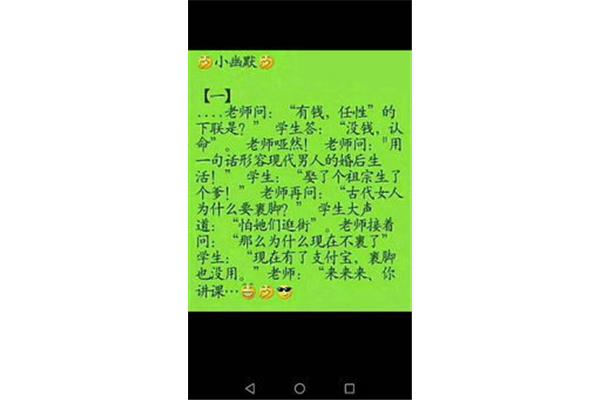 小幽默
【一】
....老师问：“有钱，任性”的
下联是？” 学生答：“没钱，认
命”。 老师哑然！ 老师问："用
一句话形容现代男人的婚后生
活！” 学生：“娶了个祖宗生了
个爹！” 老师再问：“古代女人
为什么要裹脚？” 学生大声
道：“怕她们逛街”。老师接着
问：“那么为什么现在不裹了”
学生：“现在有了支付宝，裹脚
也没用。”老师：“来来来、你
讲课…